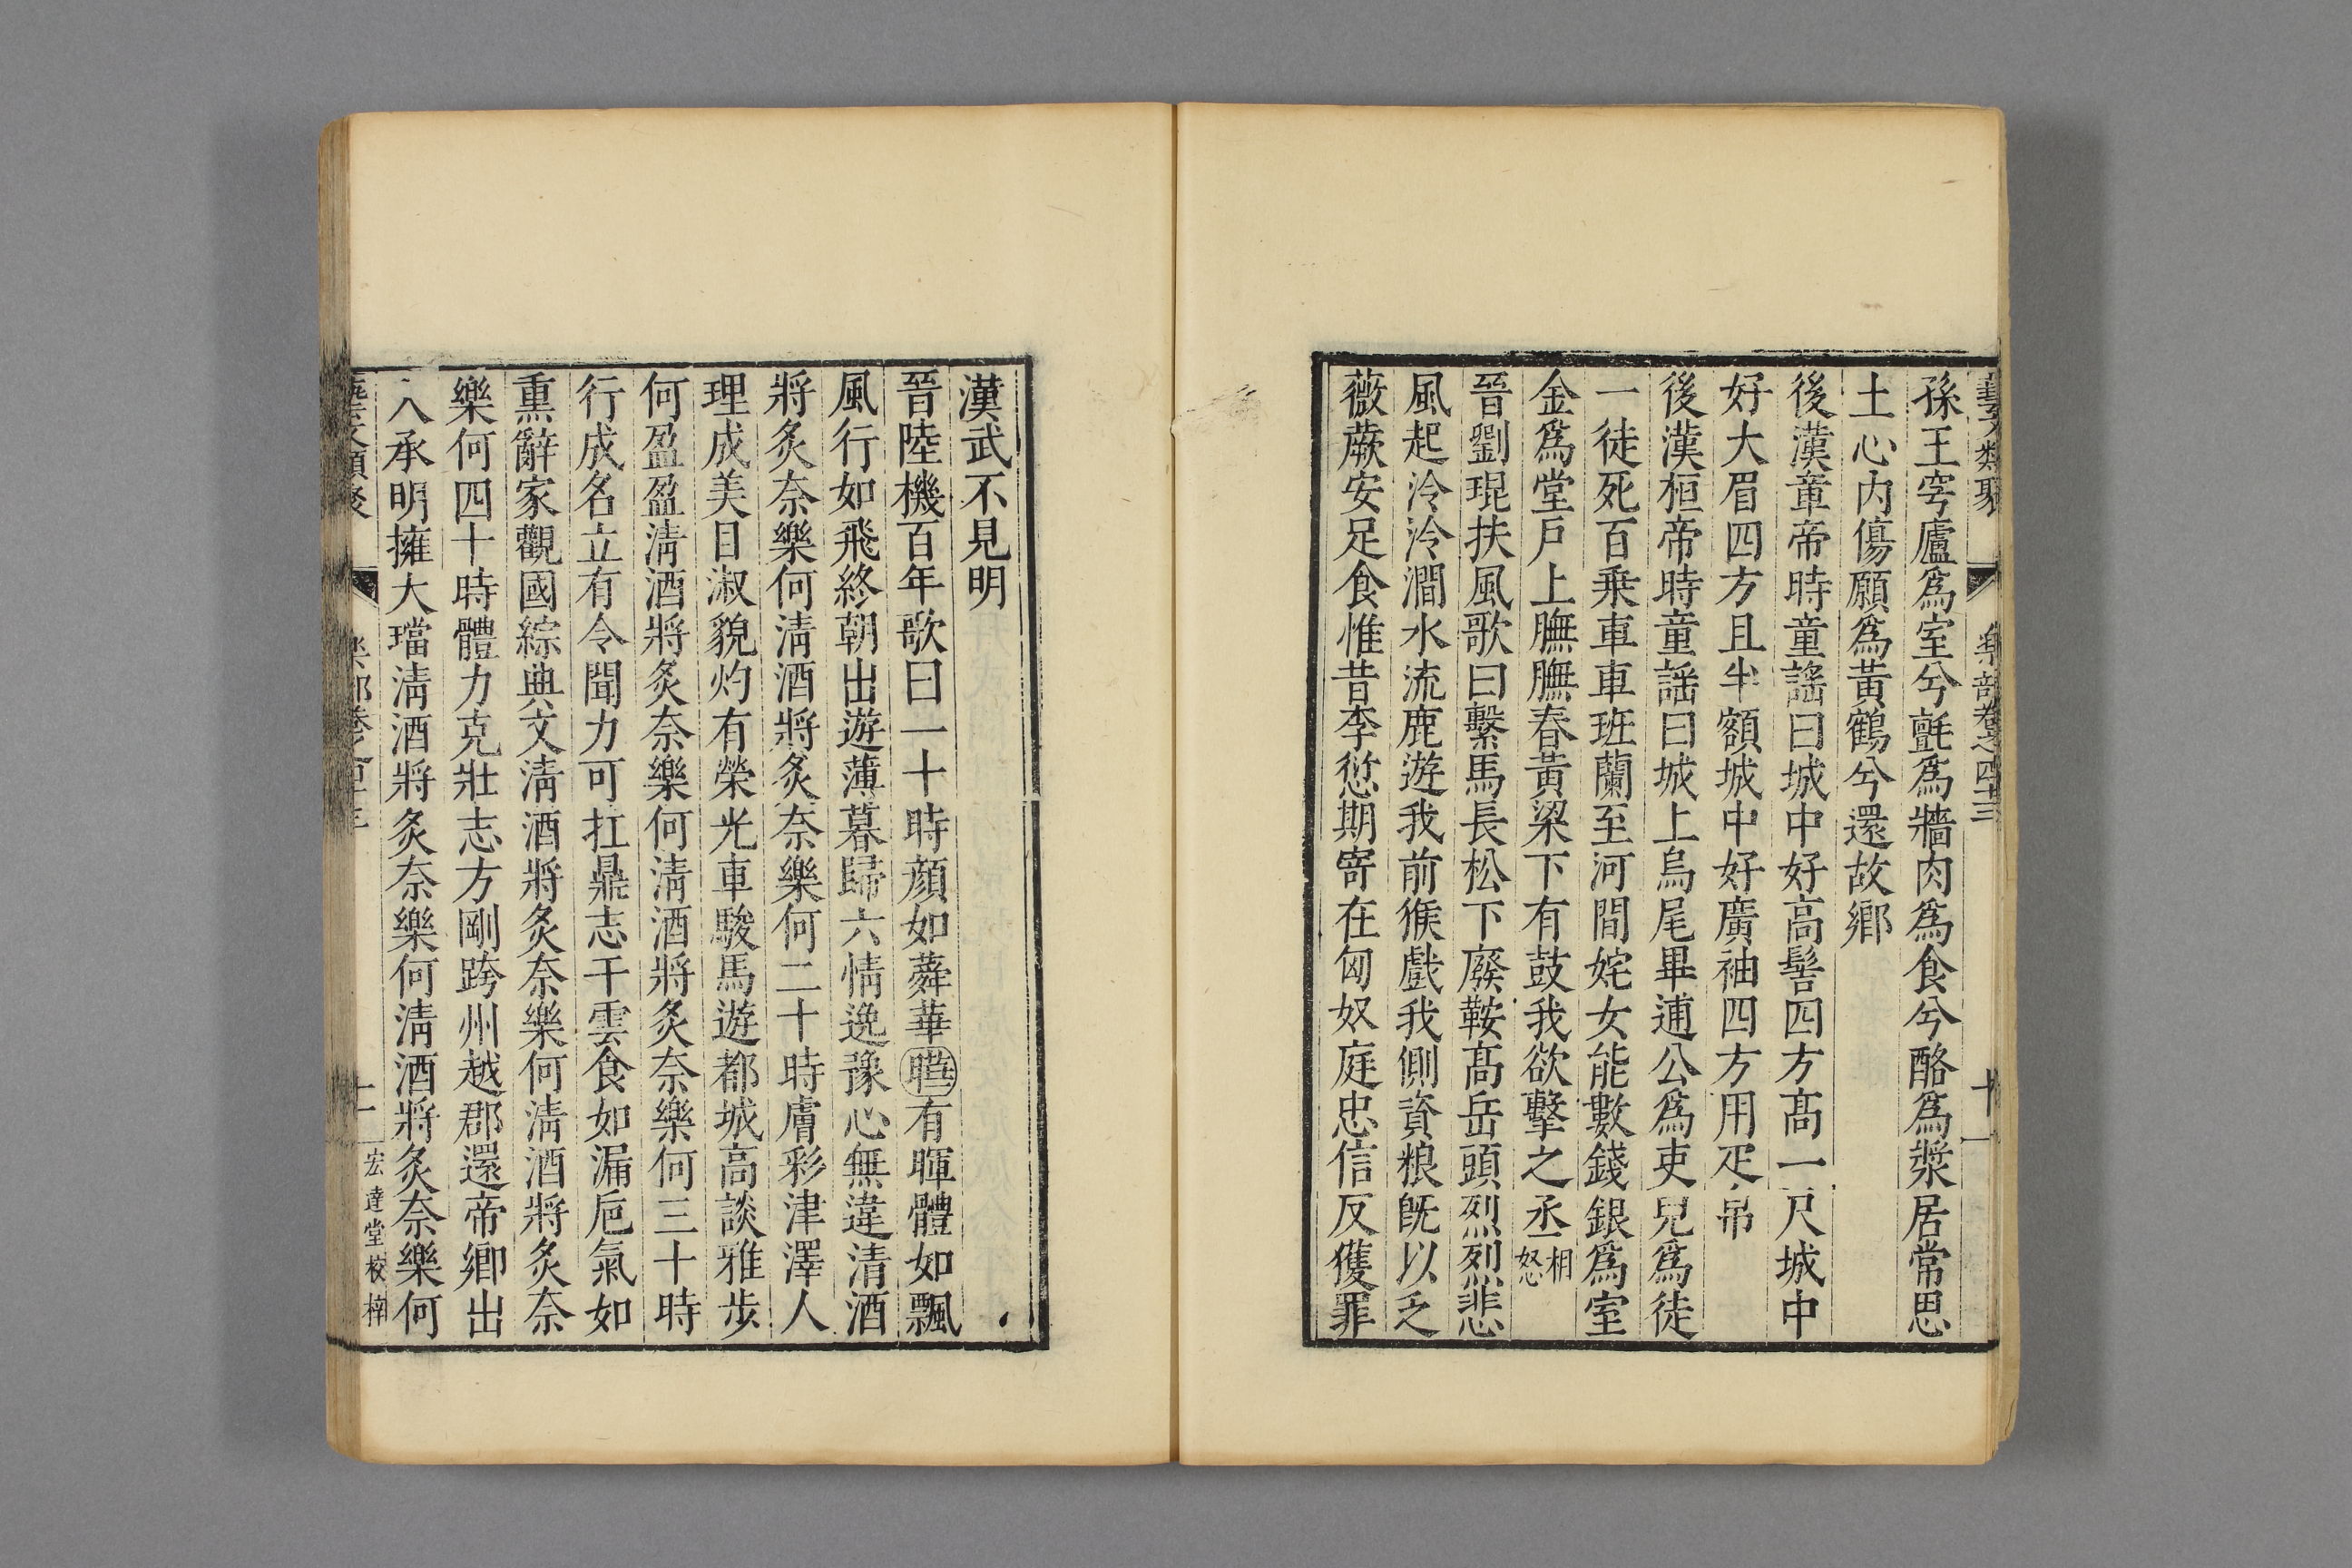 藝文類聚 樂部卷之四十三 十一
孫王穹廬爲室兮氈爲牆肉爲食兮酪爲漿居常思
土心內傷願爲黃鶴兮還故鄉
後漢章帝時童謠曰城中好高髻四方高一尺城中
好大眉四方且半額城中好廣袖四方用疋帛
後漢桓帝時童謡曰城上烏尾畢逋公爲吏兒爲徒
一徒死百乗車車班蘭至河間姹女能數錢銀爲室
金爲堂戶上膴膴舂黃梁下有鼓我欲擊之丞相怒
晉劉琨扶風歌曰繫馬長松下廢鞍髙岳頭烈烈悲
風起泠泠澗水流鹿遊我前猴戲我側資粮旣以乏
薇蕨安足食惟昔李愆期寄在匈奴庭忠信反獲罪
漢武不見明
晉陸機百年歌曰一十時顔如蕣華曄有暉體如飄
風行如飛終朝出遊薄暮歸六情逸豫心無違清酒
將炙奈樂何清酒將炙奈樂何二十時膚彩津澤人
理成美目淑貌灼有榮光車駿馬遊都城高談雅步
何盈盈清酒將炙奈樂何清酒將炙奈樂何三十時
行成名立有令聞力可扛鼎志干雲食如漏巵氣如
熏辭家觀國綜典文清酒將炙奈樂何清酒將炙奈
樂何四十時體力克壯志方剛跨州越郡還帝鄉出
入承明擁大璫清酒將炙奈樂何清酒將炙奈樂何
藝文類聚 樂部卷之四十三 十一 宏達堂校梓